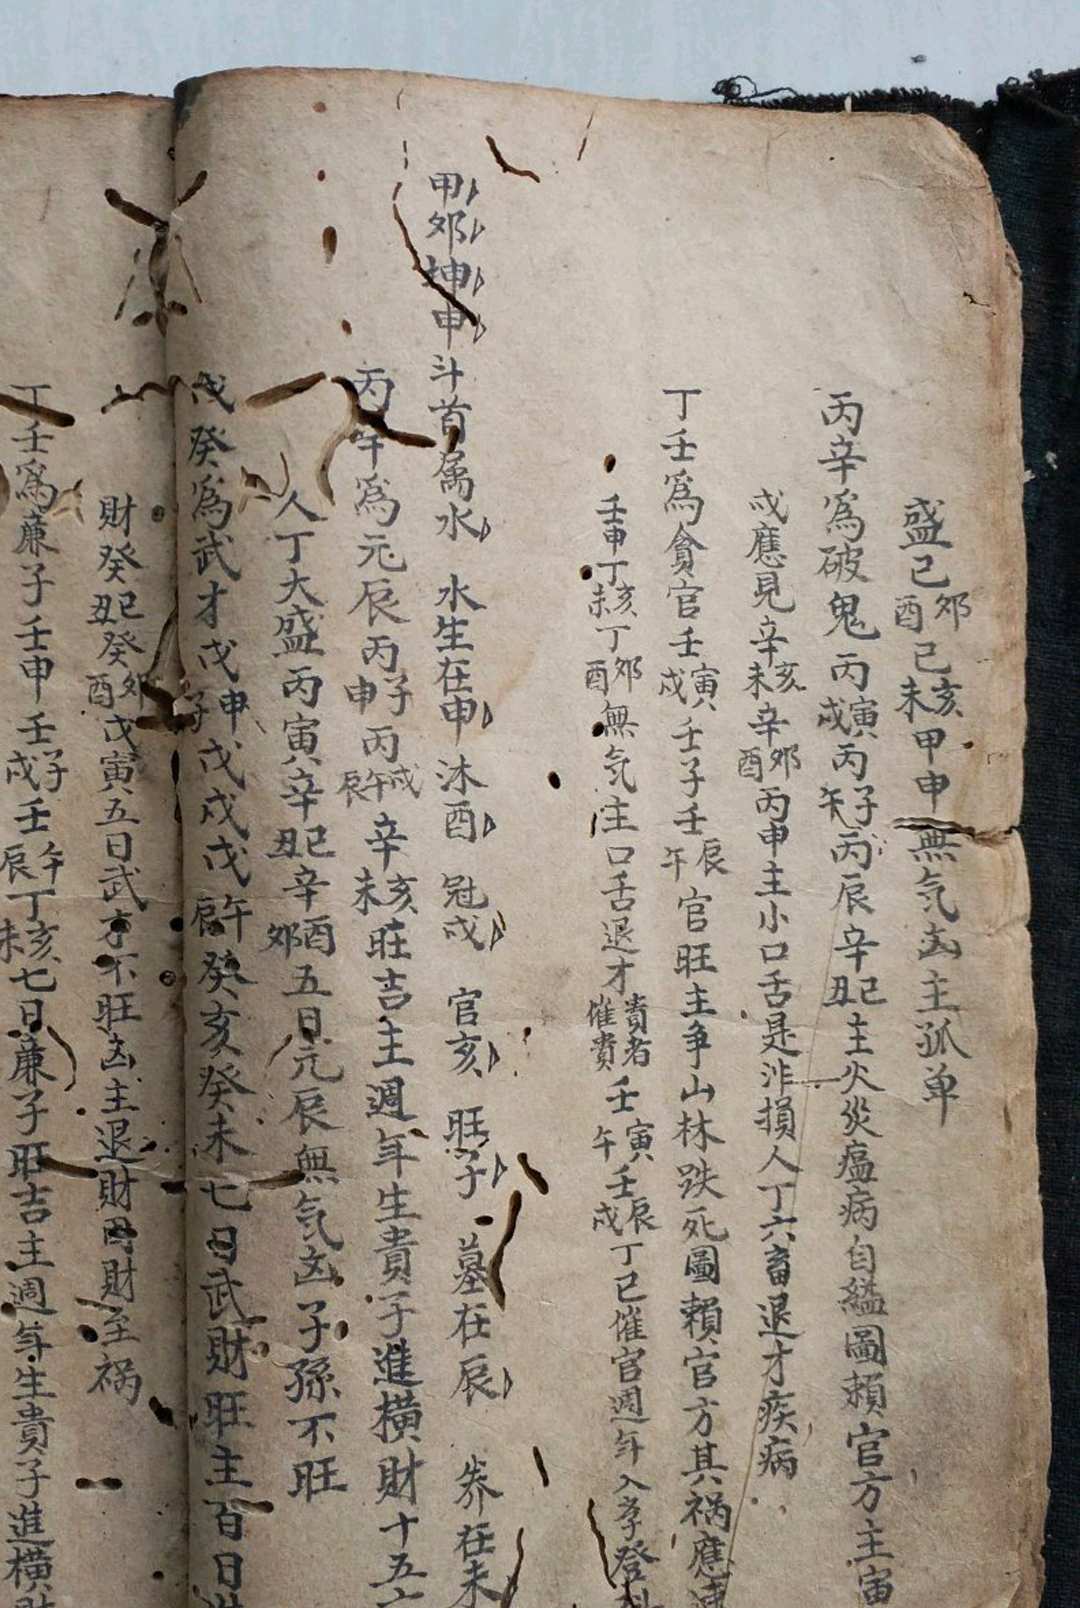 盛己卯酉己亥未甲申無気凶主孤单
丙辛為破鬼丙寅戌丙子午丙辰辛巳丑主火災瘟病自縊圖賴官方主寅
戌應見辛亥未辛卯酉丙申主小口舌是非損人丁六畜退才疾病
丁壬為貪官壬寅戌壬子壬辰午官旺主争山林跌死圖賴官方其禍應
壬申丁亥未丁卯酉無気主口舌退才貴者催貴壬寅午壬辰戌丁巳催官週年入孝登科
甲卯坤申斗首属水 水生在申 沐酉 冠戌 官亥 旺子 墓在辰 养在未
丙辛為元辰丙子申丙戌午辰辛亥未旺吉主週年生貴子進横財十五六
人丁大盛丙寅辛巳丑辛酉卯五日元辰無気凶子孫不旺
戊癸為武才戊申子戊戌戊午辰癸亥癸未七日武財旺主百日進
財癸巳丑癸卯酉戊寅五日武才不旺凶主退財因財至禍
丁壬為廉子壬申壬子戌壬午辰丁亥未七日廉子旺吉主週年生貴子進横財